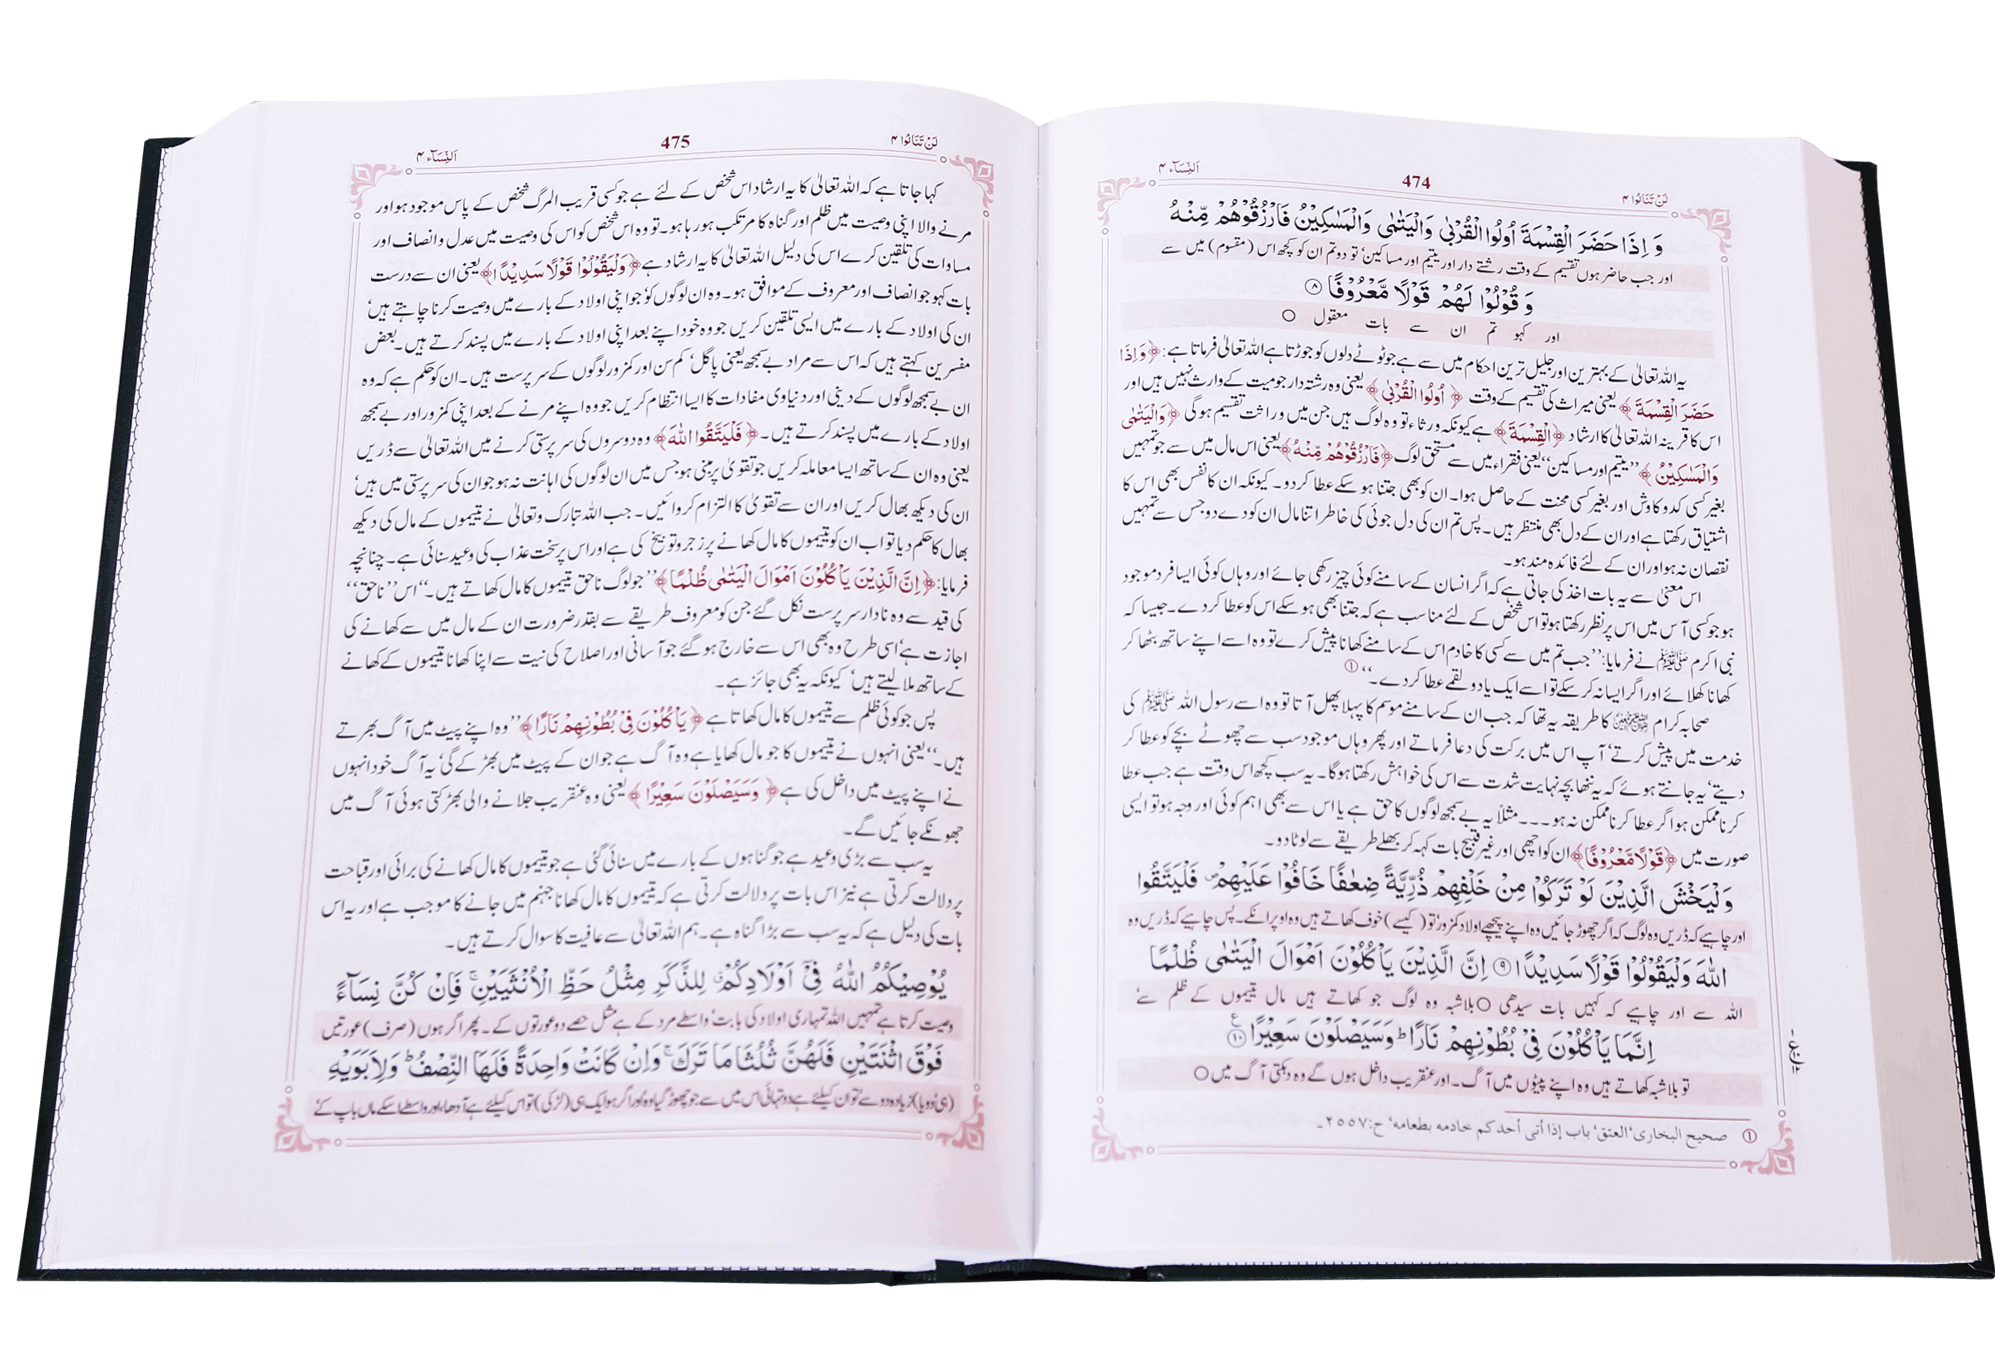 لَنْ تَنَالُوا ۴
474
اَلنِّسَآء ۴
وَ اِذَا حَضَرَ الْقِسْمَةَ اُولُوا الْقُرْبٰى وَالْيَتٰمٰى وَالْمَسٰكِيْنُ فَارْزُقُوْهُمْ مِّنْهُ
اور جب حاضر ہوں تقسیم کے وقت رشتے دار اور یتیم اور مساکین' تو دو تم ان کو کچھ اس (مقسوم) میں سے
وَ قُوْلُوْا لَهُمْ قَوْلًا مَّعْرُوْفًا ۸
اور کہو تم ان سے بات معقول ○
یہ اللہ تعالیٰ کے بہترین اور جلیل ترین احکام میں سے ہے جو ٹوٹے دلوں کو جوڑتا ہے اللہ تعالیٰ فرماتا ہے: ﴿وَاِذَا
حَضَرَ الْقِسْمَةَ﴾ یعنی میراث کی تقسیم کے وقت ﴿اُولُوا الْقُرْبٰى﴾ یعنی وہ رشتہ دار جو میت کے وارث نہیں ہیں اور
اس کا قرینہ اللہ تعالیٰ کا ارشاد ﴿الْقِسْمَةَ﴾ ہے کیونکہ ورثاء تو وہ لوگ ہیں جن میں وراثت تقسیم ہوگی ﴿وَالْيَتٰمٰى
وَالْمَسٰكِيْنُ﴾ ’’یتیم اور مساکین‘‘ یعنی فقراء میں سے مستحق لوگ ﴿فَارْزُقُوْهُمْ مِّنْهُ﴾ یعنی اس مال میں سے جو تمہیں
بغیر کسی کدوکاوش اور بغیر کسی محنت کے حاصل ہوا۔ ان کو بھی جتنا ہو سکے عطا کر دو۔ کیونکہ ان کا نفس بھی اس کا
اشتیاق رکھتا ہے اور ان کے دل بھی منتظر ہیں۔ پس تم ان کی دل جوئی کی خاطر اتنا مال ان کو دے دو جس سے تمہیں
نقصان نہ ہو اور ان کے لئے فائدہ مند ہو۔
اس معنیٰ سے یہ بات اخذ کی جاتی ہے کہ اگر انسان کے سامنے کوئی چیز رکھی جائے اور وہاں کوئی ایسا فرد موجود
ہو جو کسی آس میں اس پر نظر رکھتا ہو تو اس شخص کے لئے مناسب ہے کہ جتنا بھی ہو سکے اس کو عطا کر دے۔ جیسا کہ
نبی اکرم ﷺ نے فرمایا: ’’جب تم میں سے کسی کا خادم اس کے سامنے کھانا پیش کرے تو وہ اسے اپنے ساتھ بٹھا کر
کھانا کھلائے اور اگر ایسا نہ کر سکے تو اسے ایک یا دو لقمے عطا کر دے۔‘‘ ①
صحابہ کرام کا طریقہ یہ تھا کہ جب ان کے سامنے موسم کا پہلا پھل آتا تو وہ اسے رسول اللہ ﷺ کی
خدمت میں پیش کرتے' آپ اس میں برکت کی دعا فرماتے اور پھر وہاں موجود سب سے چھوٹے بچے کو عطا کر
دیتے' یہ جانتے ہوئے کہ یہ ننھا بچہ نہایت شدت سے اس کی خواہش رکھتا ہوگا۔ یہ سب کچھ اس وقت ہے جب عطا
کرنا ممکن ہو اگر عطا کرنا ممکن نہ ہو ۔۔۔ مثلاً یہ بے سمجھ لوگوں کا حق ہے یا اس سے بھی اہم کوئی اور وجہ ہو تو ایسی
صورت میں ﴿قَوْلًا مَّعْرُوْفًا﴾ ان کو اچھی اور غیر قبیح بات کہہ کر بھلے طریقے سے لوٹا دو۔
وَلْيَخْشَ الَّذِيْنَ لَوْ تَرَكُوْا مِنْ خَلْفِهِمْ ذُرِّيَّةً ضِعٰفًا خَافُوْا عَلَيْهِمْ ۪ فَلْيَتَّقُوا
اور چاہیے کہ ڈریں وہ لوگ کہ اگر چھوڑ جائیں وہ اپنے پیچھے اولاد کمزور' تو (کیسے) خوف کھاتے ہیں وہ اوپر انکے۔ پس چاہیے کہ ڈریں وہ
اللّٰهَ وَلْيَقُوْلُوْا قَوْلًا سَدِيْدًا ۹ اِنَّ الَّذِيْنَ يَاْكُلُوْنَ اَمْوَالَ الْيَتٰمٰى ظُلْمًا
اللہ سے اور چاہیے کہ کہیں بات سیدھی ○ بلاشبہ وہ لوگ جو کھاتے ہیں مال یتیموں کے ظلم سے'
اِنَّمَا يَاْكُلُوْنَ فِيْ بُطُوْنِهِمْ نَارًا ؕ وَسَيَصْلَوْنَ سَعِيْرًا ۱۰
تو بلاشبہ کھاتے ہیں وہ اپنے پیٹوں میں آگ۔ اور عنقریب داخل ہوں گے وہ دہکتی آگ میں ○
① صحيح البخاری' العتق' باب إذا أتى أحدكم خادمه بطعامه' ح: ۲۵۵۷۔
لَنْ تَنَالُوا ۴
475
اَلنِّسَآء ۴
کہا جاتا ہے کہ اللہ تعالیٰ کا یہ ارشاد اس شخص کے لئے ہے جو کسی قریب المرگ شخص کے پاس موجود ہو اور
مرنے والا اپنی وصیت میں ظلم اور گناہ کا مرتکب ہو رہا ہو۔ تو وہ اس شخص کو اس کی وصیت میں عدل و انصاف اور
مساوات کی تلقین کرے اس کی دلیل اللہ تعالیٰ کا یہ ارشاد ہے ﴿وَلْيَقُوْلُوْا قَوْلًا سَدِيْدًا﴾ یعنی ان سے درست
بات کہو جو انصاف اور معروف کے موافق ہو۔ وہ ان لوگوں کو' جو اپنی اولاد کے بارے میں وصیت کرنا چاہتے ہیں'
ان کی اولاد کے بارے میں ایسی تلقین کریں جو وہ خود اپنے بعد اپنی اولاد کے بارے میں پسند کرتے ہیں۔ بعض
مفسرین کہتے ہیں کہ اس سے مراد بے سمجھ یعنی پاگل' کم سن اور کمزور لوگوں کے سرپرست ہیں۔ ان کو حکم ہے کہ وہ
ان بے سمجھ لوگوں کے دینی اور دنیاوی مفادات کا ایسا انتظام کریں جو وہ اپنے مرنے کے بعد اپنی کمزور اور بے سمجھ
اولاد کے بارے میں پسند کرتے ہیں۔ ﴿فَلْيَتَّقُوا اللّٰهَ﴾ وہ دوسروں کی سرپرستی کرنے میں اللہ تعالیٰ سے ڈریں
یعنی وہ ان کے ساتھ ایسا معاملہ کریں جو تقویٰ پر مبنی ہو جس میں ان لوگوں کی اہانت نہ ہو جو ان کی سرپرستی میں ہیں'
ان کی دیکھ بھال کریں اور ان سے تقویٰ کا التزام کروائیں۔ جب اللہ تبارک وتعالیٰ نے یتیموں کے مال کی دیکھ
بھال کا حکم دیا تو اب ان کو یتیموں کا مال کھانے پر زجر و توبیخ کی ہے اور اس پر سخت عذاب کی وعید سنائی ہے۔ چنانچہ
فرمایا: ﴿اِنَّ الَّذِيْنَ يَاْكُلُوْنَ اَمْوَالَ الْيَتٰمٰى ظُلْمًا﴾ ’’جو لوگ ناحق یتیموں کا مال کھاتے ہیں۔‘‘ اس ’’ناحق‘‘
کی قید سے وہ نادار سرپرست نکل گئے جن کو معروف طریقے سے بقدر ضرورت ان کے مال میں سے کھانے کی
اجازت ہے' اسی طرح وہ بھی اس سے خارج ہو گئے جو آسانی اور اصلاح کی نیت سے اپنا کھانا یتیموں کے کھانے
کے ساتھ ملا لیتے ہیں' کیونکہ یہ بھی جائز ہے۔
پس جو کوئی ظلم سے یتیموں کا مال کھاتا ہے ﴿يَاْكُلُوْنَ فِيْ بُطُوْنِهِمْ نَارًا﴾ ’’وہ اپنے پیٹ میں آگ بھرتے
ہیں۔‘‘ یعنی انہوں نے یتیموں کا جو مال کھایا ہے وہ آگ ہے جو ان کے پیٹ میں بھڑکے گی' یہ آگ خود انہوں
نے اپنے پیٹ میں داخل کی ہے ﴿وَسَيَصْلَوْنَ سَعِيْرًا﴾ یعنی وہ عنقریب جلانے والی بھڑکتی ہوئی آگ میں
جھونکے جائیں گے۔
یہ سب سے بڑی وعید ہے جو گناہوں کے بارے میں سنائی گئی ہے جو یتیموں کا مال کھانے کی برائی اور قباحت
پر دلالت کرتی ہے نیز اس بات پر دلالت کرتی ہے کہ یتیموں کا مال کھانا جہنم میں جانے کا موجب ہے اور یہ اس
بات کی دلیل ہے کہ یہ سب سے بڑا گناہ ہے۔ ہم اللہ تعالیٰ سے عافیت کا سوال کرتے ہیں۔
يُوْصِيْكُمُ اللّٰهُ فِيْٓ اَوْلَادِكُمْ ۗ لِلذَّكَرِ مِثْلُ حَظِّ الْاُنْثَيَيْنِ ۚ فَاِنْ كُنَّ نِسَآءً
وصیت کرتا ہے تمہیں اللہ تمہاری اولاد کی بابت' واسطے مرد کے ہے مثل حصے دو عورتوں کے۔ پھر اگر ہوں (صرف) عورتیں
فَوْقَ اثْنَتَيْنِ فَلَهُنَّ ثُلُثَا مَا تَرَكَ ۚ وَاِنْ كَانَتْ وَاحِدَةً فَلَهَا النِّصْفُ ؕ وَلِاَبَوَيْهِ
(ہی' دو یا) زیادہ دو سے' تو ان کیلئے ہے دو تہائی اس میں سے جو چھوڑ گیا وہ' اور اگر ہو ایک ہی (لڑکی) تو اس کیلئے ہے آدھا' اور واسطے اسکے ماں باپ کے'